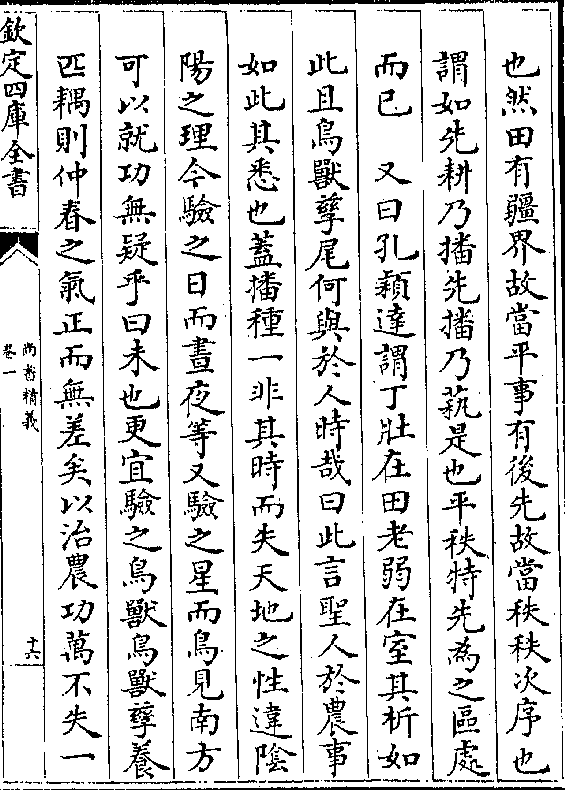 也然田有疆界故當平事有後先故當秩秩次序也
謂如先耕乃播先播乃蓺是也平秩特先為之區處
而已　又曰孔穎達謂丁壯在田老弱在室其析如
此且鳥獸孳尾何與於人時哉曰此言聖人於農事
如此其悉也蓋播種一非其時而失天地之性違陰
陽之理今驗之日而晝夜等又驗之星而鳥見南方
可以就功無疑乎曰未也更宜驗之鳥獸鳥獸孳養
匹耦則仲春之氣正而無差矣以治農功萬不失一
欽定四庫全書
尚書精義
卷一
十六